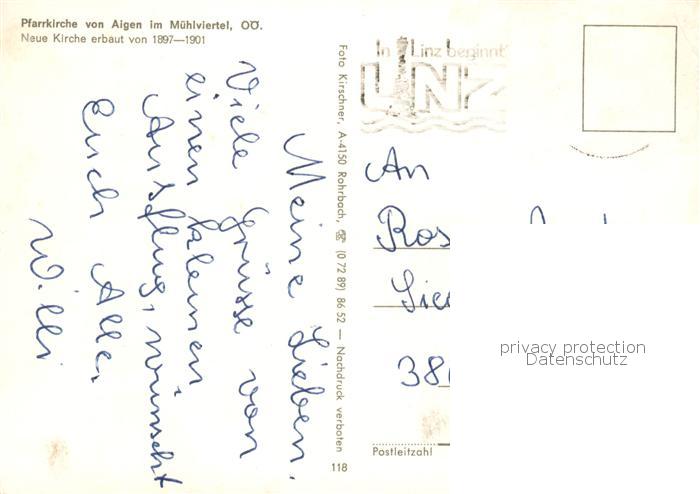 Pfarrkirche von Aigen im Mühlviertel, OÖ.
Neue Kirche erbaut von 1897—1901
Meine Lieben.
Viele Grüsse von
einen kleinen
Ausflug, wünscht
Euch Allen
Willi
Foto Kirschner, A-4150 Rohrbach, ☎ (0 72 89) 86 52 — Nachdruck verboten
118
In Linz beginnt's
LINZ
An
Ros
38
Postleitzahl
privacy protection
Datenschutz